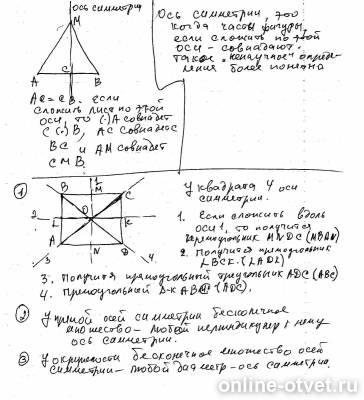 ось симметрии
M
A C B
AC = CB. если
сложить лист по этой
оси, то (·) A совпадёт
с (·) B, AC совпадёт
BC и AM совпадёт
с MB.
Ось симметрии, это
когда части фигуры,
если сложить по этой
оси - совпадают.
такое "ненаучное" опреде-
ления более понятна
1
B 1 M C
2 L O K
A N D
3 4
У квадрата 4 оси
симметрии.
1. Если сложить вдоль
оси 1, то получится
прямоугольник MNDC (MBAN)
2. Получится прямоугольник
LBCK. (LADK)
3. Получится прямоугольный треугольник ADC (ABC)
4. Прямоугольный Δ-к
2 У прямой осей симметрии бесконечное
множество - любой перпендикуляр к нему
ось симметрии.
3 У окружности бесконечное множество осей
симметрии - любой диаметр - ось симметрии.
online-otvet.ru